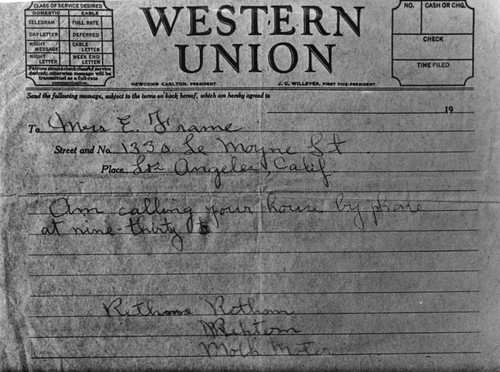 CLASS OF SERVICE DESIRED
DOMESTIC CABLE
TELEGRAM FULL RATE
DAY LETTER DEFERRED
NIGHT MESSAGE CABLE LETTER
NIGHT LETTER WEEK END LETTER
Patrons should check class of service desired; otherwise message will be transmitted as a full-rate
WESTERN
UNION
NEWCOMB CARLTON, PRESIDENT J. C. WILLEVER, FIRST VICE-PRESIDENT
NO. CASH OR CHG.
CHECK
TIME FILED
Send the following message, subject to the terms on back hereof, which are hereby agreed to
19
To Mrs E. Frame
Street and No. 1330 Le Moyne St
Place Los Angeles, Calif
Am calling your house by phone
at nine-thirty